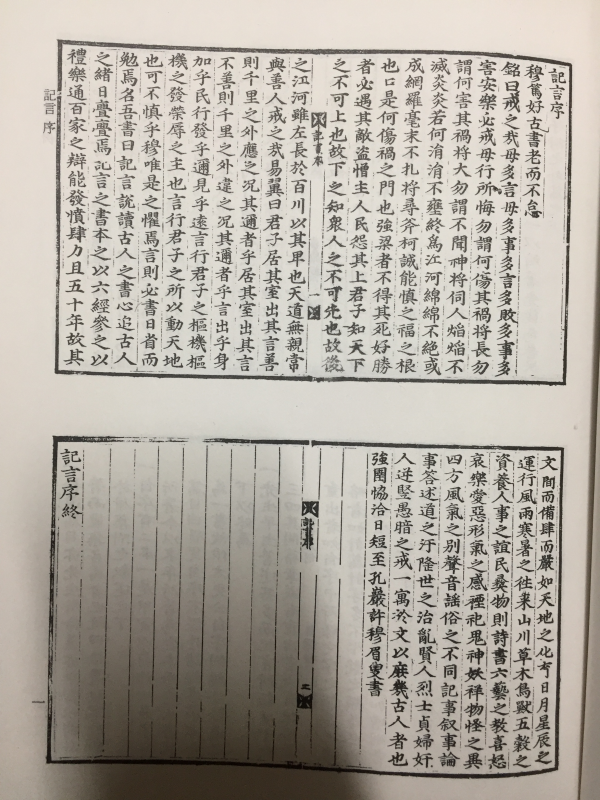 記言序
穆篤好古書老而不怠
銘曰戒之哉毋多言毋多事多言多敗多事多
害安樂必戒毋行所悔勿謂何傷其禍將長勿
謂何害其禍將大勿謂不聞神將伺人焰焰不
滅炎炎若何涓涓不壅終爲江河綿綿不絶或
成網羅毫末不扎將尋斧柯誠能慎之福之根
也口是何傷禍之門也强梁者不得其死好勝
者必遇其敵盜憎主人民怨其上君子知天下
之不可上也故下之知衆人之不可先也故後
記言序 一
之江河雖左長於百川以其卑也天道無親常
與善人戒之哉易翼曰君子居其室出其言善
則千里之外應之況其邇者乎居其室出其言
不善則千里之外違之況其邇者乎言出乎身
加乎民行發乎邇見乎遠言行君子之樞機樞
機之發榮辱之主也言行君子之所以動天地
也可不慎乎穆唯是之懼焉言則必書日省而
勉焉名吾書曰記言說讀古人之書心追古人
之緖日亹亹焉記言之書本之以六經參之以
禮樂通百家之辯能發憤肆力且五十年故其
記言 序
文簡而備肆而嚴如天地之化育日月星辰之
運行風雨寒暑之往來山川草木鳥獸五穀之
資養人事之誼民彝物則詩書六藝之敎喜怒
哀樂愛惡形氣之感禋祀鬼神妖祥物怪之異
四方風氣之別聲音謠俗之不同記事叙事論
事答述道之汙隆世之治亂賢人烈士貞婦奸
人逆竪愚暗之戒一寓於文以庶幾古人者也
强圉恊洽日短至孔巖許穆眉叟書
記言序 二
記言序終
一